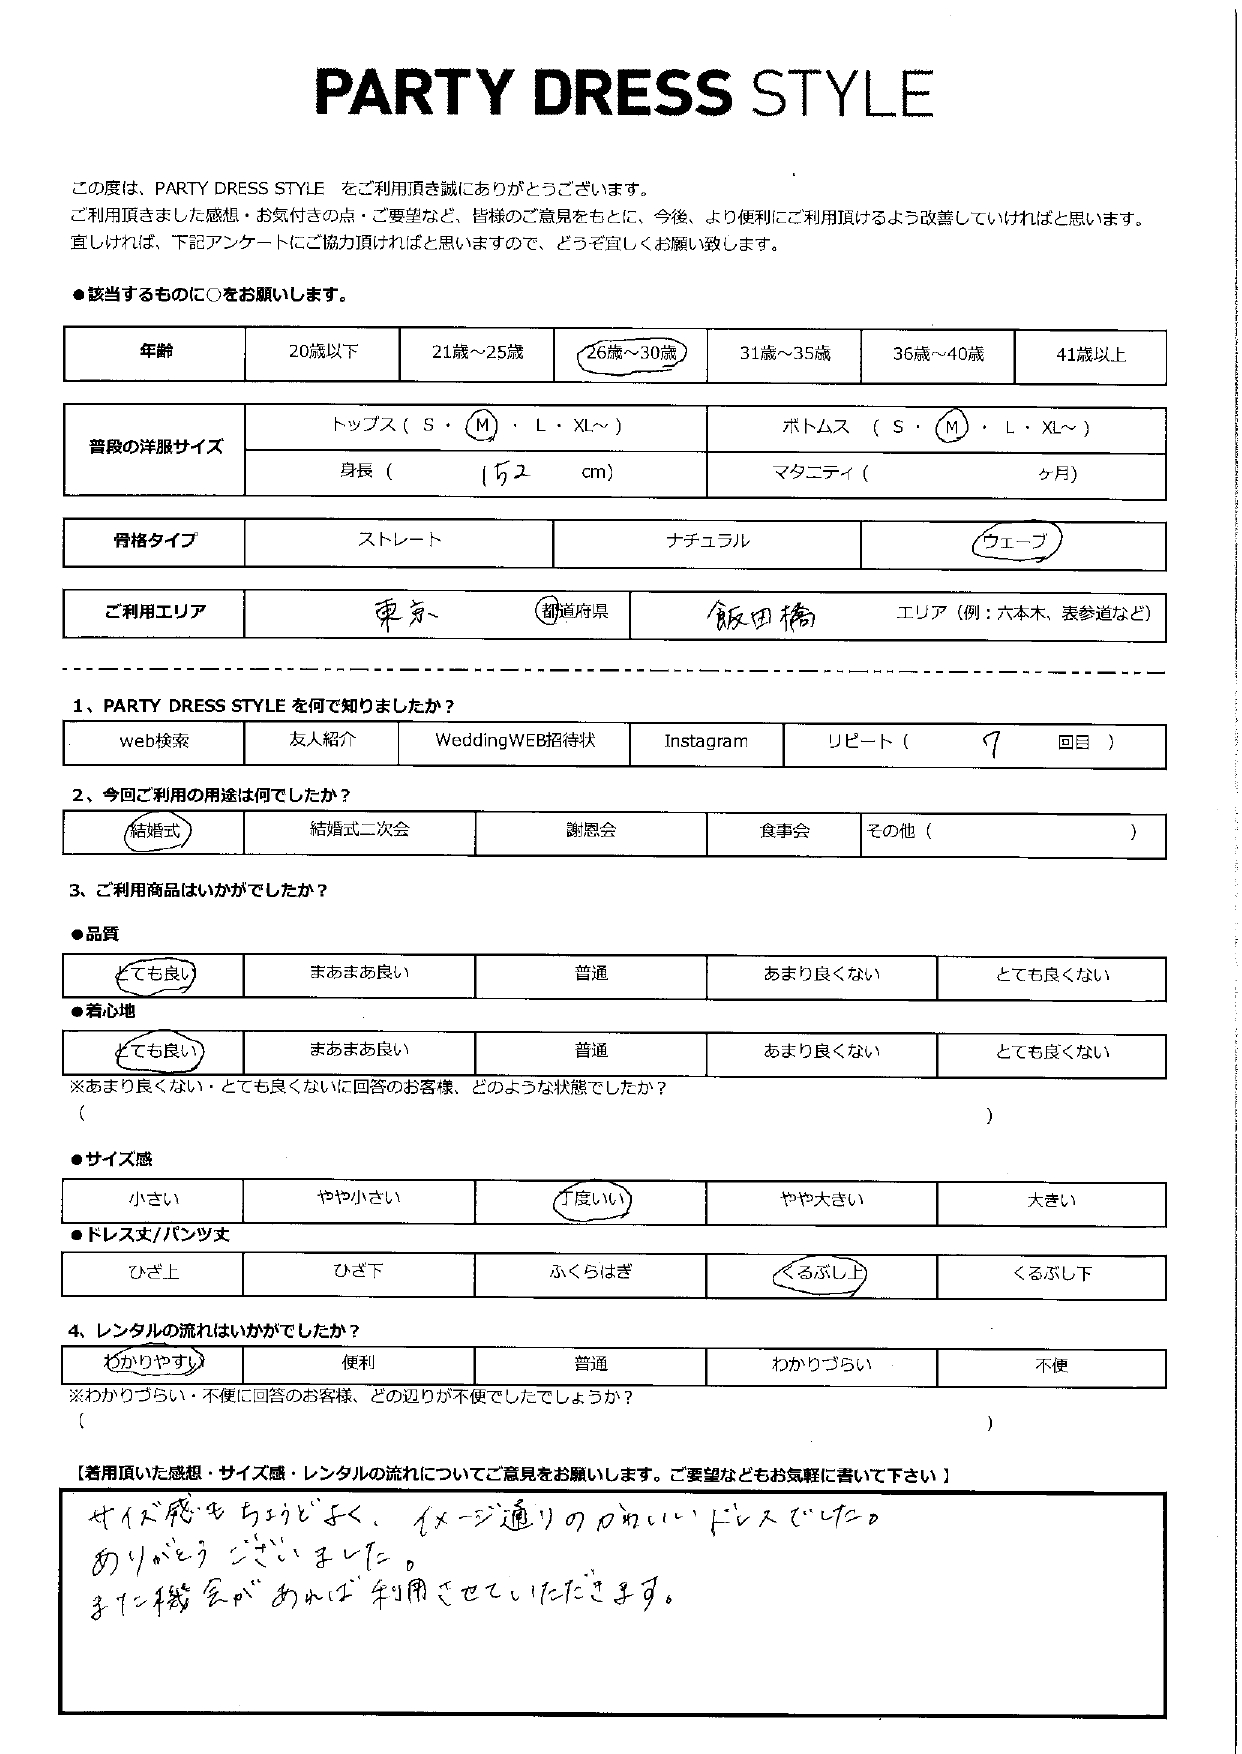 PARTY DRESS STYLE
この度は、PARTY DRESS STYLE をご利用頂き誠にありがとうございます。
ご利用頂きました感想・お気付きの点・ご要望など、皆様のご意見をもとに、今後、より便利にご利用頂けるよう改善していければと思います。
宜しければ、下記アンケートにご協力頂ければと思いますので、どうぞ宜しくお願い致します。
●該当するものに○をお願いします。
年齢 20歳以下 21歳～25歳 26歳～30歳 31歳～35歳 36歳～40歳 41歳以上
普段の洋服サイズ トップス ( S ・ M ・ L ・ XL～ ) ボトムス ( S ・ M ・ L ・ XL～ )
身長 ( 152 cm) マタニティ ( ヶ月)
骨格タイプ ストレート ナチュラル ウェーブ
ご利用エリア 東京 都道府県 飯田橋 エリア（例：六本木、表参道など）
1、PARTY DRESS STYLE を何で知りましたか？
web検索 友人紹介 WeddingWEB招待状 Instagram リピート ( 7 回目 )
2、今回ご利用の用途は何でしたか？
結婚式 結婚式二次会 謝恩会 食事会 その他 ( )
3、ご利用商品はいかがでしたか？
●品質
とても良い まあまあ良い 普通 あまり良くない とても良くない
●着心地
とても良い まあまあ良い 普通 あまり良くない とても良くない
※あまり良くない・とても良くないに回答のお客様、どのような状態でしたか？
( )
●サイズ感
小さい やや小さい 丁度いい やや大きい 大きい
●ドレス丈/パンツ丈
ひざ上 ひざ下 ふくらはぎ くるぶし上 くるぶし下
4、レンタルの流れはいかがでしたか？
わかりやすい 便利 普通 わかりづらい 不便
※わかりづらい・不便に回答のお客様、どの辺りが不便でしたでしょうか？
( )
【着用頂いた感想・サイズ感・レンタルの流れについてご意見をお願いします。ご要望などもお気軽に書いて下さい 】
サイズ感もちょうどよく、イメージ通りのかわいいドレスでした。
ありがとうございました。
また機会があれば利用させていただきます。